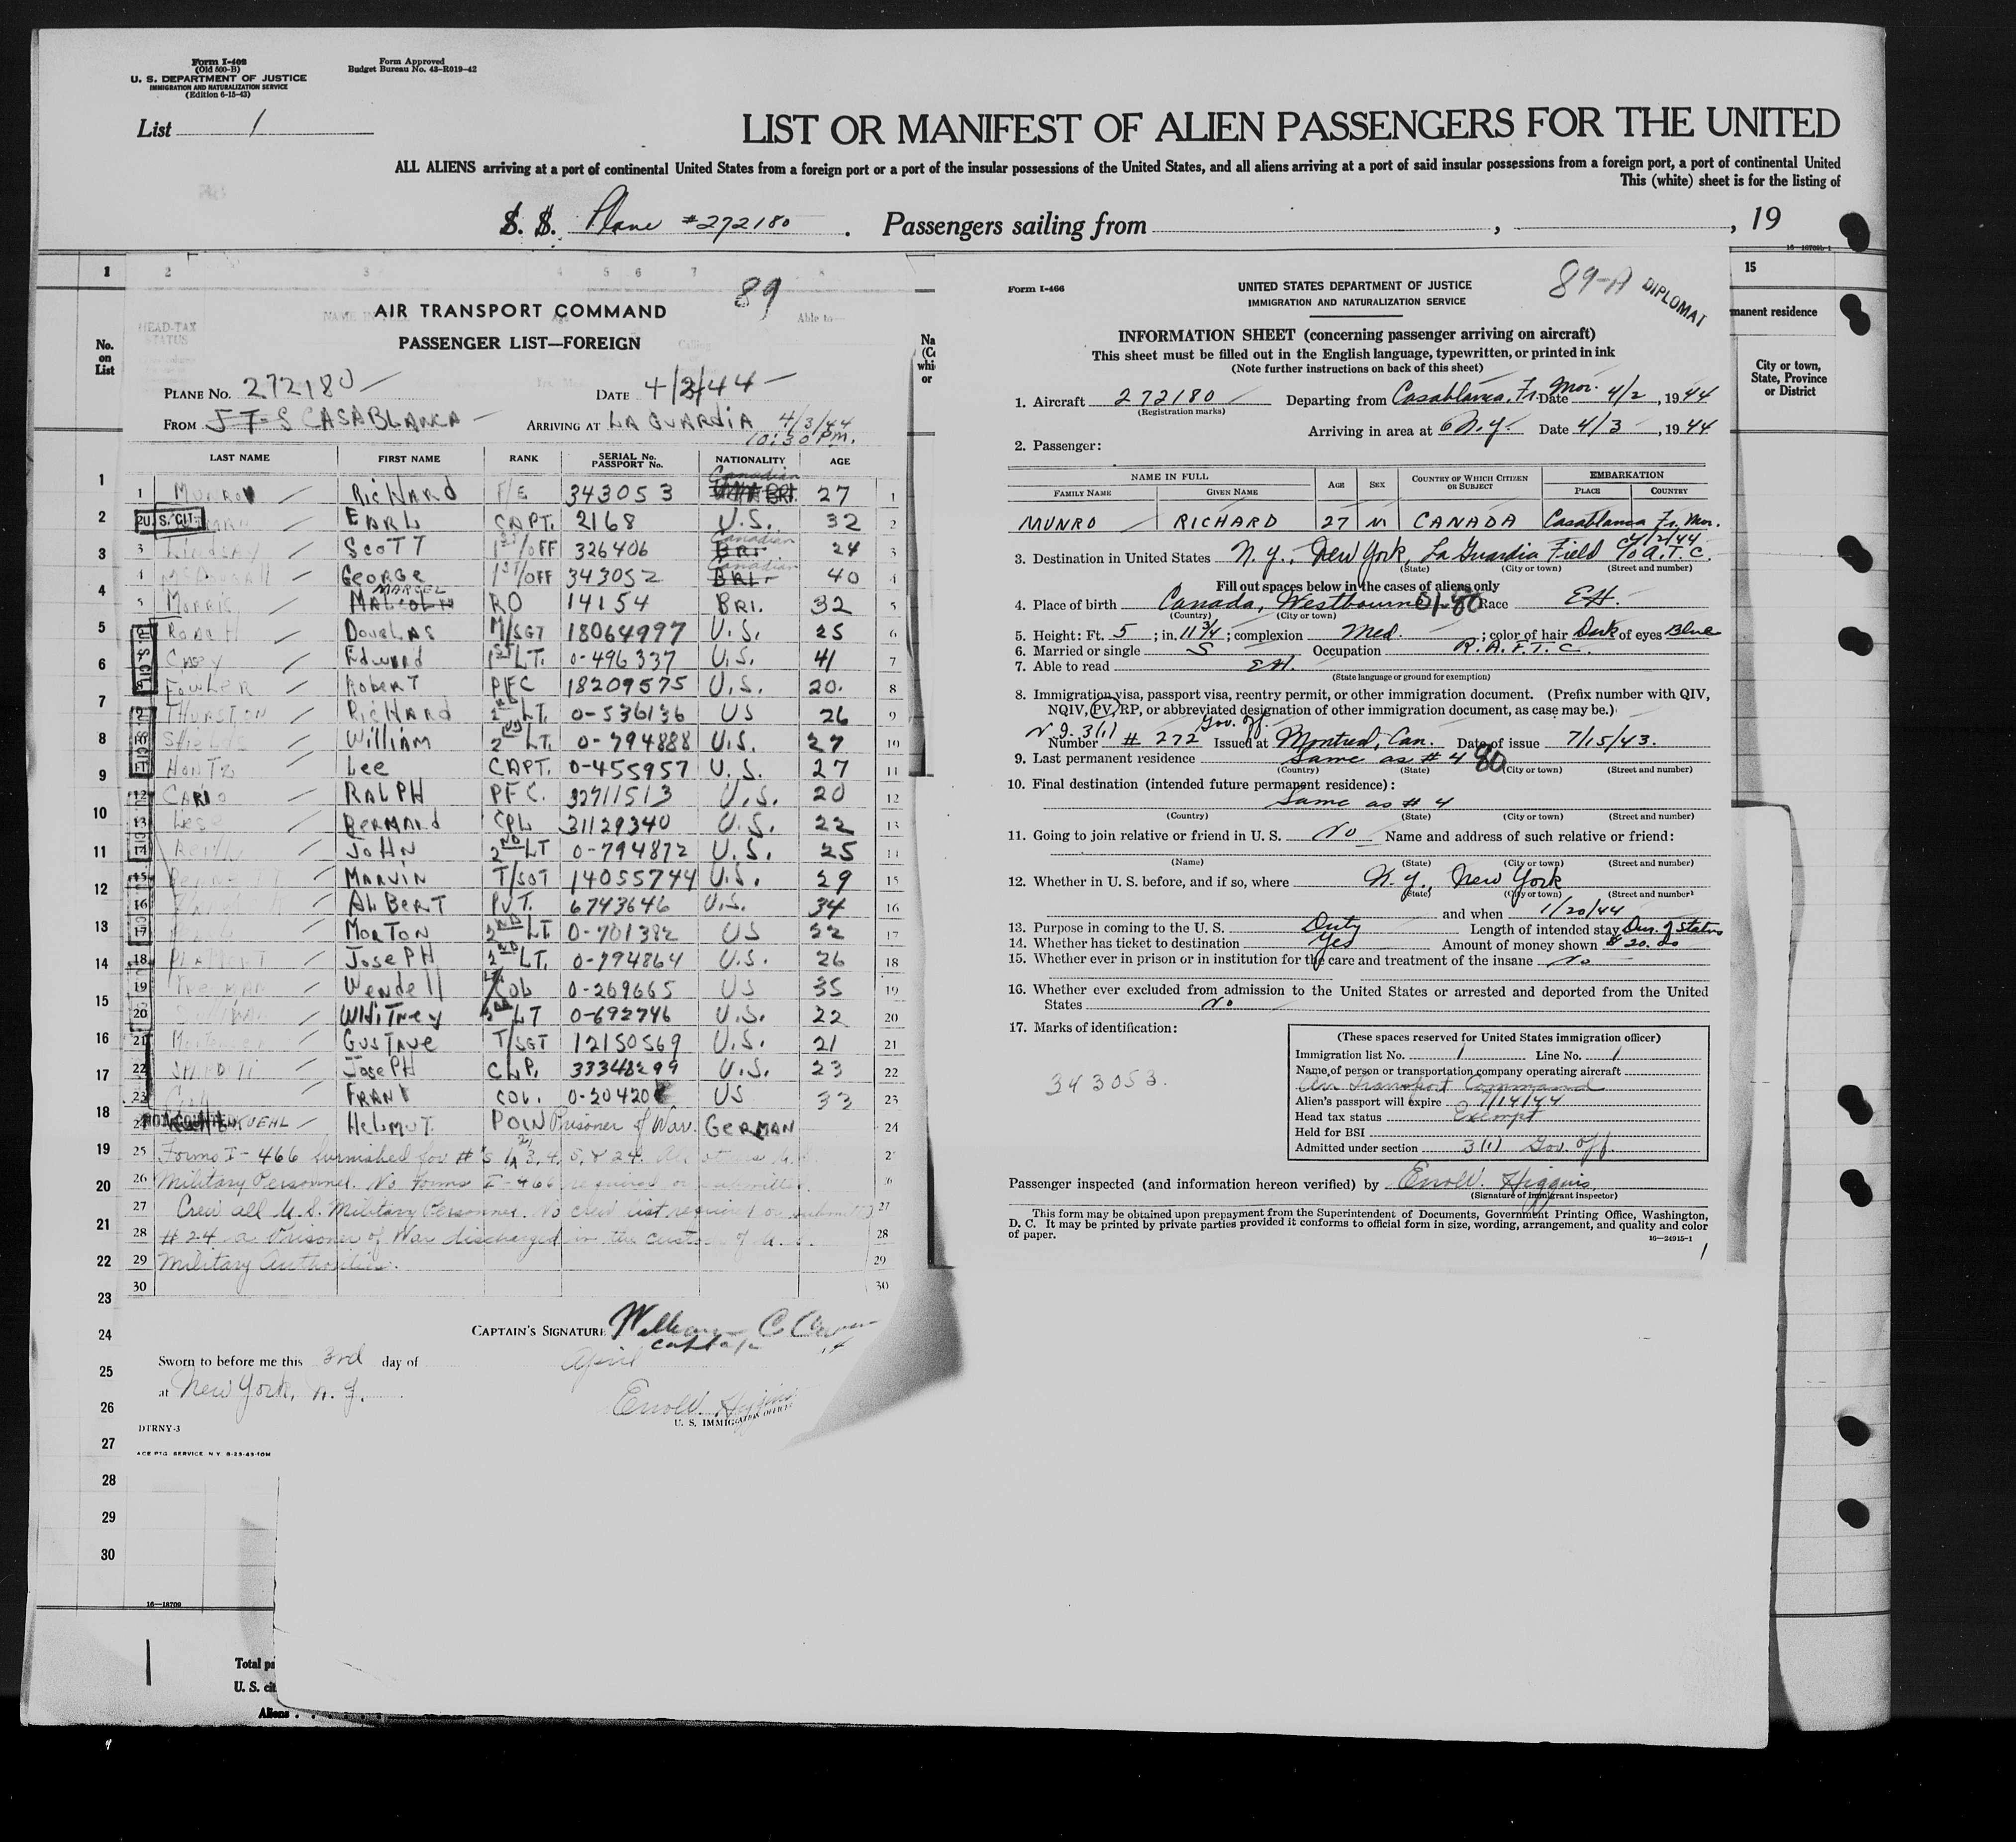 Form I-402
(Old 500-B)
U. S. DEPARTMENT OF JUSTICE
IMMIGRATION AND NATURALIZATION SERVICE
(Edition 6-15-43)
Form Approved
Budget Bureau No. 43-R019-42
List 1
LIST OR MANIFEST OF ALIEN PASSENGERS FOR THE UNITED
ALL ALIENS arriving at a port of continental United States from a foreign port or a port of the insular possessions of the United States, and all aliens arriving at a port of said insular possessions from a foreign port, a port of continental United
This (white) sheet is for the listing of
S. S. Plane #272180. Passengers sailing from , , 19
1 2 3 4 5 6 7 8
No. on List
HEAD-TAX STATUS
89
AIR TRANSPORT COMMAND
PASSENGER LIST—FOREIGN
PLANE NO. 272180 DATE 4/3/44
FROM CASABLANCA ARRIVING AT LA GUARDIA 4/3/44
10:30 PM.
LAST NAME FIRST NAME RANK SERIAL No. PASSPORT No. NATIONALITY AGE
1 MUNRO RICHARD F/E 343053 Canadian BRI. 27 1
2 U. S. CIT. EARL CAPT. 2168 U.S. 32 2
3 LINDSAY SCOTT 1ST/OFF 326406 Canadian BRI. 24 3
4 McDOUGALL GEORGE 1ST/OFF 343052 Canadian BRI. 40 4
5 MORRIS MARCEL MALCOLM RO 14154 BRI. 32 5
DOUGLAS M/SGT 18064997 U.S. 25 6
CASEY EDWARD 1ST LT. 0-496337 U.S. 41 7
FOWLER ROBERT PFC 18209575 U.S. 20. 8
THURSTON RICHARD 2ND LT. 0-536136 US 26 9
10 SHIELDS WILLIAM 2ND LT. 0-794888 U.S. 27 10
LEE CAPT. 0-455957 U.S. 27 11
12 RALPH PFC. 32711513 U.S. 20 12
13 BERNARD CPL 31129340 U.S. 22 13
14 REILLY JOHN 2ND LT 0-794872 U.S. 25 14
15 MARVIN T/SGT 14055744 U.S. 29 15
16 ALBERT PVT. 6743646 U.S. 34 16
17 MORTON 2ND LT 0-701382 US 22 17
18 JOSEPH 2ND LT. 0-794864 U.S. 26 18
19 WENDELL COL 0-269665 US 35 19
20 SULLIVAN WHITNEY 2ND LT 0-692746 U.S. 22 20
21 Mortensen GUSTAVE T/SGT 12150569 U.S. 21 21
22 JOSEPH CLP. 33348299 U.S. 23 22
23 FRANK COL. 0-20420 US 33 23
24 NON COUNTED KUEHL HELMUT POW Prisoner of War. GERMAN 24
25 Forms I-466 furnished for #'s 1, 2, 3, 4, 5, & 24. All others U.S.
26 Military Personnel. No forms I-466 required or submitted. 26
27 Crew all U.S. Military Personnel. No crew list required or submitted 27
28 #24 a Prisoner of War discharged in the custody of U.S. 28
29 Military Authorities. 29
30 30
CAPTAIN'S SIGNATURE William C.
Captain
Sworn to before me this 3rd day of April
at New York, N.Y.
Errol W. Higgins
U. S. IMMIGRATION OFFICER
DTRNY-3
ACE PTG SERVICE N Y 8-25-43-10M
1
2
3
4
5
6
7
8
9
10
11
12
13
14
15
16
17
18
19
20
21
22
23
24
25
26
27
28
29
30
16—18709
Total pa
U. S. cit
Aliens
Form I-466
UNITED STATES DEPARTMENT OF JUSTICE
IMMIGRATION AND NATURALIZATION SERVICE
89-A DIPLOMAT
INFORMATION SHEET (concerning passenger arriving on aircraft)
This sheet must be filled out in the English language, typewritten, or printed in ink
(Note further instructions on back of this sheet)
1. Aircraft 272180 Departing from Casablanca, Fr. Mor. Date 4/2, 1944
(Registration marks)
Arriving in area at N.Y. Date 4/3, 1944
2. Passenger:
NAME IN FULL AGE SEX COUNTRY OF WHICH CITIZEN OR SUBJECT EMBARKATION
FAMILY NAME GIVEN NAME PLACE COUNTRY
MUNRO RICHARD 27 M CANADA Casablanca Fr. Mor.
4/2/44
3. Destination in United States N.Y., New York, La Guardia Field c/o A.T.C.
(State) (City or town) (Street and number)
Fill out spaces below in the cases of aliens only
4. Place of birth Canada, Westbourne Race EH.
(Country) (City or town)
5. Height: Ft. 5; in. 11 3/4; complexion Med.; color of hair Dark of eyes Blue
6. Married or single S Occupation R.A.F.T.C.
7. Able to read EH.
(State language or ground for exemption)
8. Immigration visa, passport visa, reentry permit, or other immigration document. (Prefix number with QIV,
NQIV, PV, RP, or abbreviated designation of other immigration document, as case may be.)
3(1) Gov. Off.
Number # 272 Issued at Montreal, Can. Date of issue 7/15/43.
9. Last permanent residence Same as # 4 80
(Country) (State) (City or town) (Street and number)
10. Final destination (intended future permanent residence):
Same as # 4
(Country) (State) (City or town) (Street and number)
11. Going to join relative or friend in U. S. No Name and address of such relative or friend:
(Name) (State) (City or town) (Street and number)
12. Whether in U. S. before, and if so, where N.Y., New York
(State) (City or town) (Street and number)
and when 1/20/44
13. Purpose in coming to the U. S. Duty Length of intended stay Dur. of Status
14. Whether has ticket to destination Yes Amount of money shown $20.00
15. Whether ever in prison or in institution for the care and treatment of the insane No
16. Whether ever excluded from admission to the United States or arrested and deported from the United
States No
17. Marks of identification:
343053.
(These spaces reserved for United States immigration officer)
Immigration list No. 1 Line No. 1
Name of person or transportation company operating aircraft
Air Transport Command
Alien's passport will expire 7/14/44
Head tax status Exempt
Held for BSI
Admitted under section 3(1) Gov. Off.
Passenger inspected (and information hereon verified) by Errol W. Higgins
(Signature of immigrant inspector)
This form may be obtained upon prepayment from the Superintendent of Documents, Government Printing Office, Washington,
D. C. It may be printed by private parties provided it conforms to official form in size, wording, arrangement, and quality and color
of paper.
16—24915-1
1
15
manent residence
City or town, State, Province or District